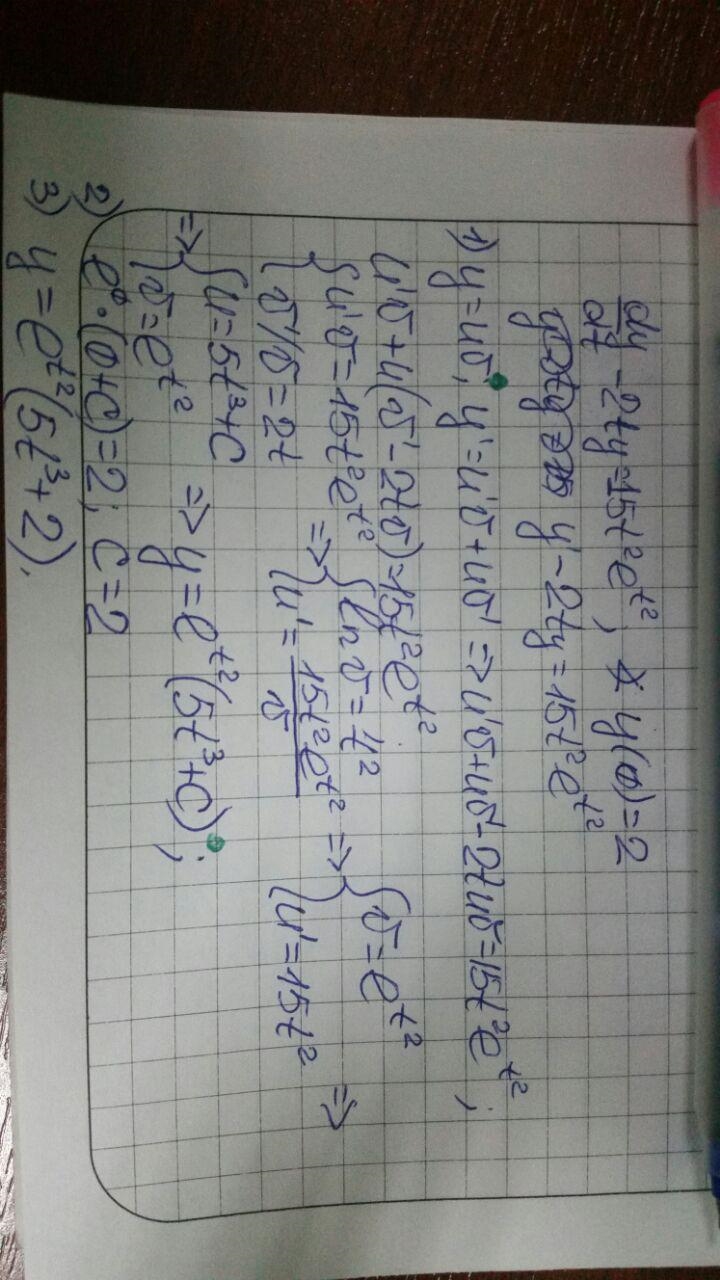 dy/dt - 2ty = 15t²e^t²; y(0) = 2
y' - 2ty = 15t²e^t²
1) y = uv, y' = u'v + uv' => u'v + uv' - 2tuv = 15t²e^t²;
u'v + u(v' - 2tv) = 15t²e^t²
{ u'v = 15t²e^t² => { ln v = t² => { v = e^t²
{ v'/v = 2t { u' = 15t²e^t²/v { u' = 15t² =>
=> { u = 5t³ + C => y = e^t²(5t³ + C);
{ v = e^t²
2) e⁰·(0 + C) = 2; C = 2
3) y = e^t²(5t³ + 2).